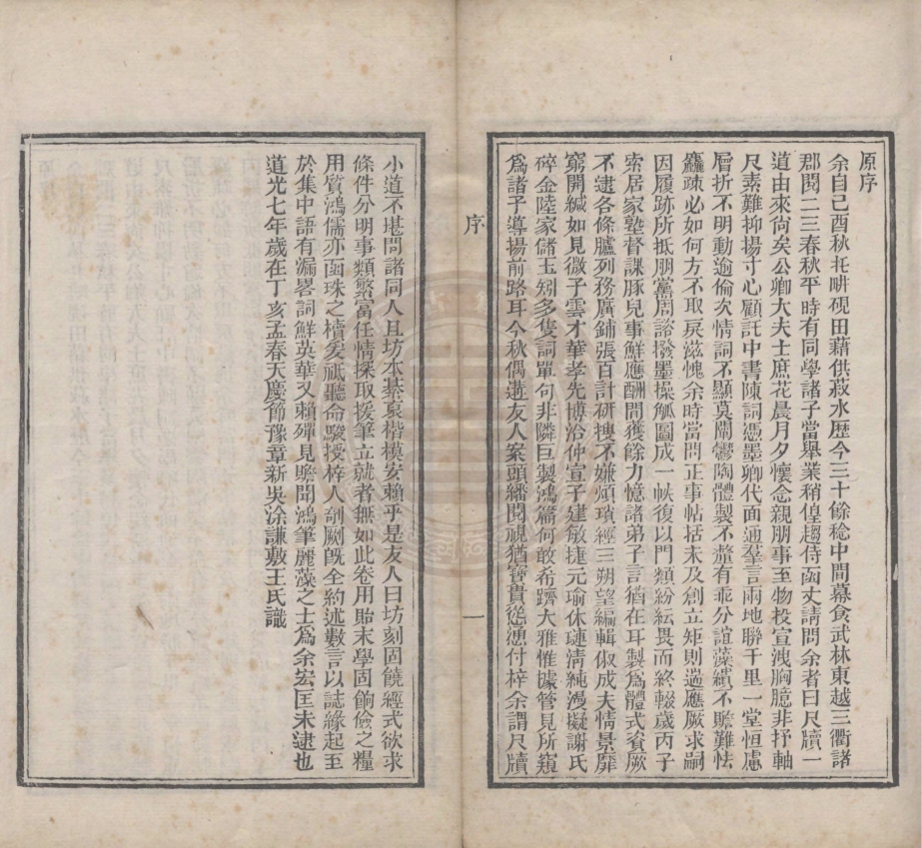 原序
余自己酉秋托畊硯田藉供菽水歷今三十餘稔中間幕食武林東越三衢諸
郡閱二三春秋平時有同學諸子當舉業稍偟趨侍函丈請問余者曰尺牘一
道由來尙矣公卿大夫士庶花晨月夕懷念親朋事至物投宣洩胸臆非抒軸
尺素難抑揚寸心顧託中書陳詞憑墨卿代面通羣言兩地聯千里一堂恒慮
層折不明動逾倫次情詞不顯莫闡鬱陶體製不釐有乖分誼藻繢不贍難怯
麤疎必如何方不取戾滋愧余時當問正事帖括未及創立矩則遄應厥求嗣
因履跡所抵朋黨周諮撥墨操觚圖成一帙復以門類紛紜畏而終輟歲丙子
索居家塾督課豚兒事鮮應酬間獲餘力憶諸弟子言猶在耳製爲體式資厥
不逮各條臚列務廣鋪張百計研搜不嫌煩瑣經三朔望編輯俶成夫情景靡
窮開緘如見微子雲才華孝先博洽仲宣子建敏捷元瑜休璉淸純漫擬謝氏
碎金陸家儲玉矧多隻詞單句非隣巨製鴻篇何敢希躋大雅惟據管見所窺
爲諸子導揚前路耳今秋偶遘友人案頭繙閱視猶寶貴慫慂付梓余謂尺牘
序
一
小道不堪問諸同人且坊本綦裒楷模安賴乎是友人曰坊刻固饒經式欲求
條件分明事類繁富任情採取援筆立就者無如此卷用貽末學固餉儉之糧
用質鴻儒亦函珠之櫝爰祇聽命駿授梓人剞劂旣全約述數言以誌緣起至
於集中語有漏畧詞鮮英華又賴殫見贍聞鴻筆麗藻之士爲余宏匡未逮也
道光七年歲在丁亥孟春天慶節豫章新吳涂謙敷王氏識